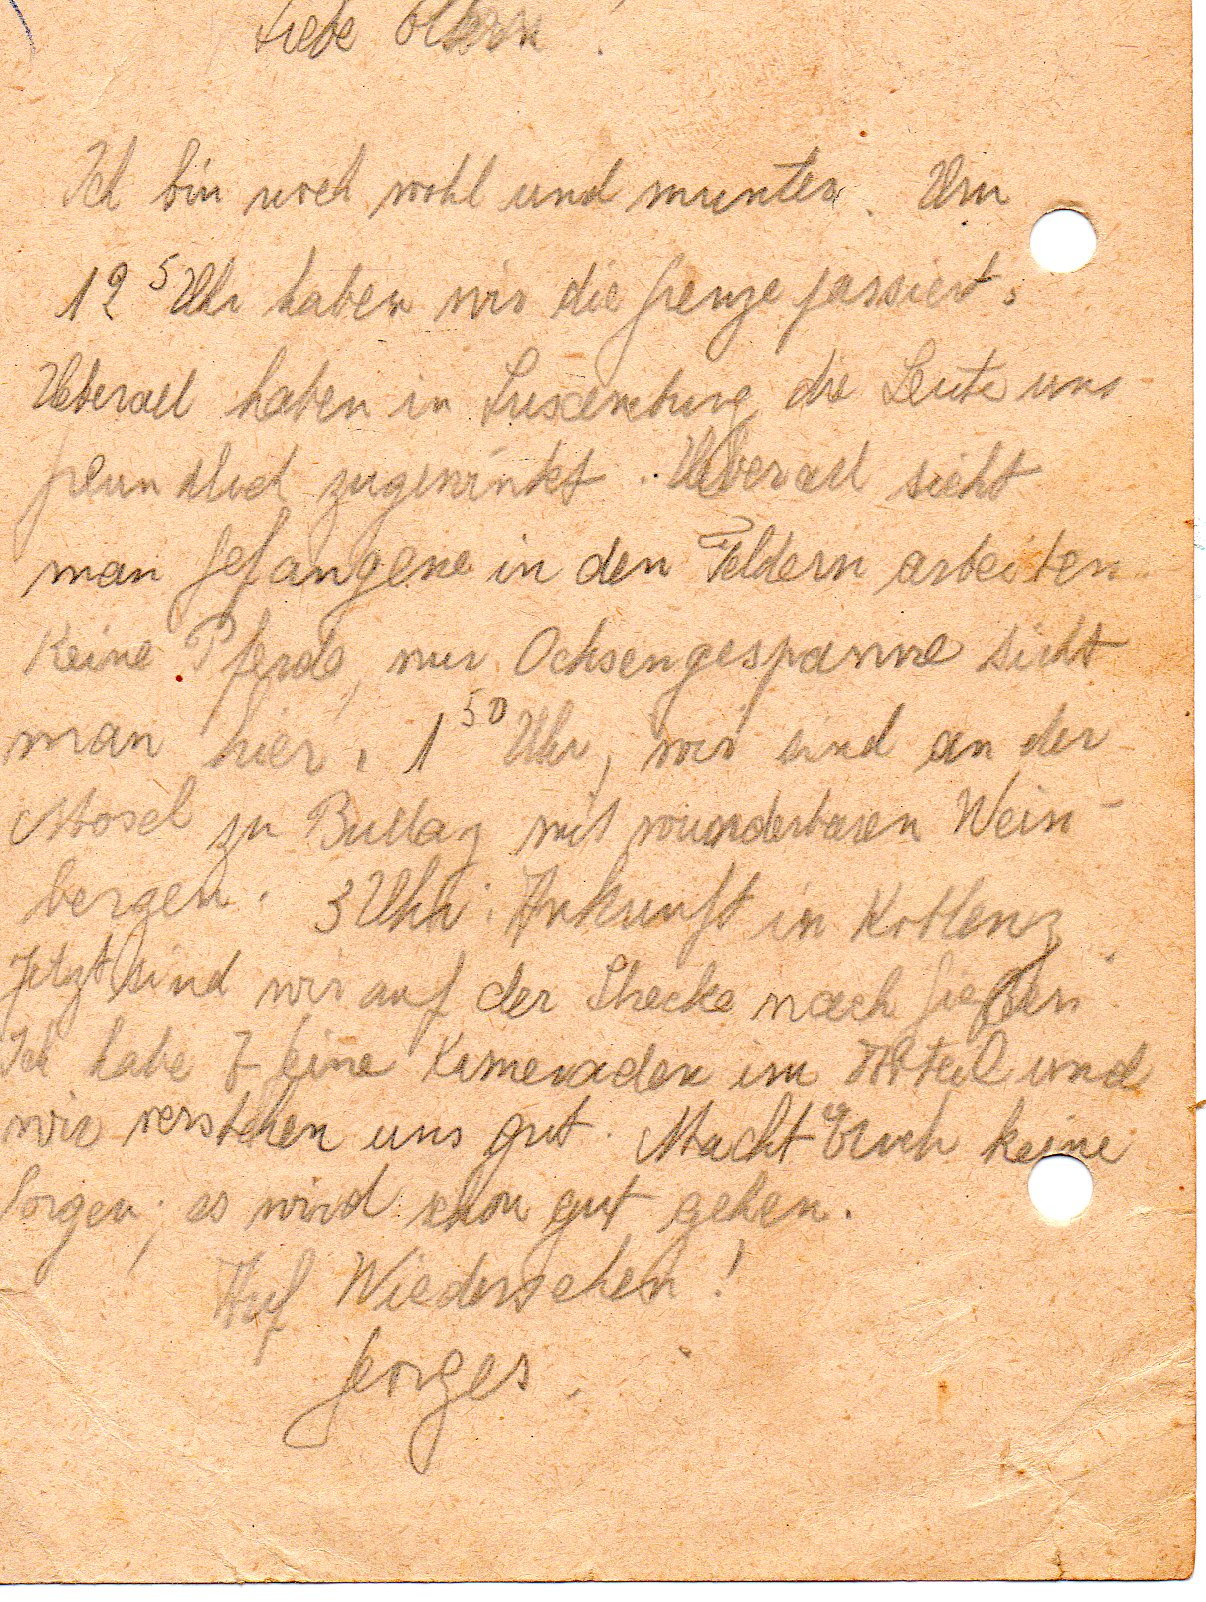 Liebe Eltern!
Ich bin noch wohl und munter. Um
12 5 Uhr haben wir die Grenze passiert.
Ueberall haben in Luxemburg die Leute uns
freundlich zugewinkt. Ueberall sieht
man Gefangene in den Feldern arbeiten.
Keine Pferde, nur Ochsengespanne sieht
man hier. 1 50 Uhr, wir sind an der
Mosel zu Bullay mit wunderbaren Wein-
bergen. 3 Uhr: Ankunft in Koblenz.
Jetzt sind wir auf der Strecke nach Gießen.
Ich habe 7 feine Kameraden im Abteil und
wir verstehen uns gut. Macht Euch keine
Sorgen; es wird schon gut gehen.
Auf Wiedersehen!
Georges.